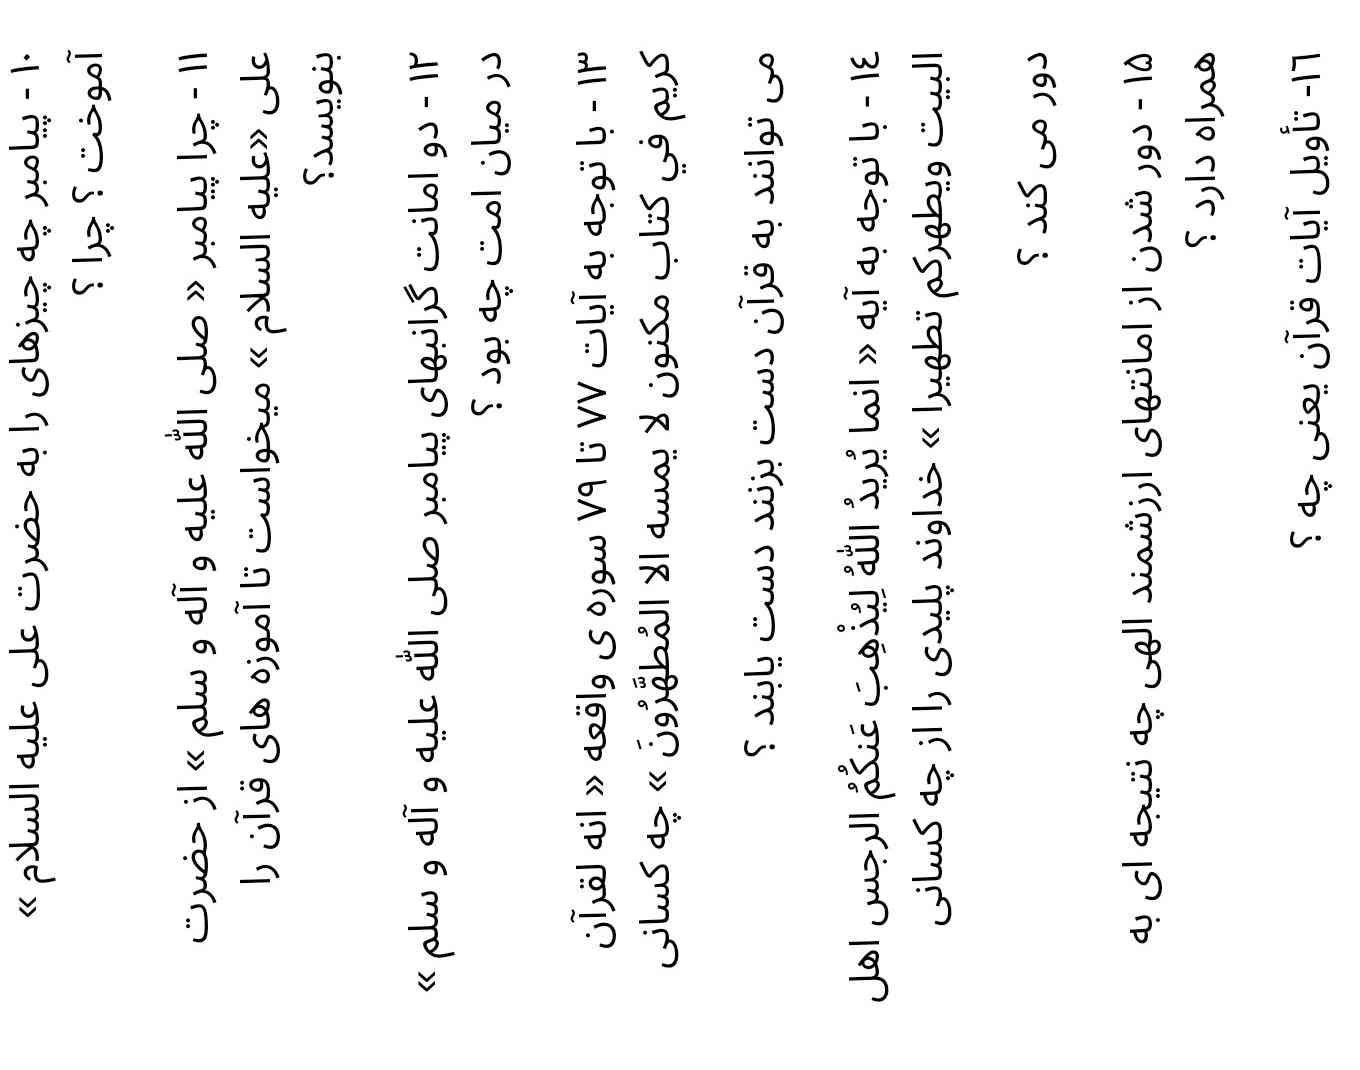 ۱۰ - پیامبر چه چیزهای را به حضرت علی علیه السلام »
آموخت ؟ چرا ؟
۱۱ - چرا پیامبر « صلی اللّه علیه و آله و سلم » از حضرت
علی «علیه السلام » میخواست تا آموزه های قرآن را
بنویسد؟
۱۲ - دو امانت گرانبهای پیامبر صلی اللّه علیه و آله و سلم »
در میان امت چه بود ؟
۱۳ - با توجه به آیات ۷۷ تا ۷۹ سوره ی واقعه « انه لقرآن
کریم في کتاب مکنون لا یمسه الا المُطهَّرُونَ » چه کسانی
می توانند به قرآن دست بزنند دست یابند ؟
١٤ - با توجه به آیه « انما یُریدُ اللّهُ لِیُذْهِبَ عَنکُمُ الرجس اهل
البیت ویطهرکم تطهیرا » خداوند پلیدی را از چه کسانی
دور می کند ؟
۱۵ - دور شدن از امانتهای ارزشمند الهی چه نتیجه ای به
همراه دارد ؟
١٦- تأویل آیات قرآن یعنی چه ؟